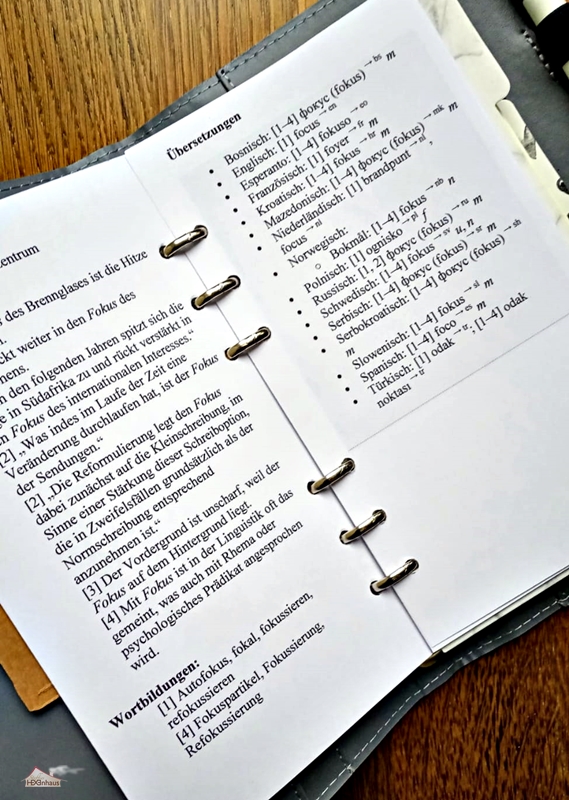 entrum
s des Brennglases ist die Hitze
n.
ckt weiter in den Fokus des
mens.
n den folgenden Jahren spitzt sich die
e in Südafrika zu und rückt verstärkt in
n Fokus des internationalen Interesses.
[2] „Was indes im Laufe der Zeit eine
Veränderung durchlaufen hat, ist der Fokus
der Sendungen.“
[2] „Die Reformulierung legt den Fokus
dabei zunächst auf die Kleinschreibung, im
Sinne einer Stärkung dieser Schreiboption,
die in Zweifelsfällen grundsätzlich als der
Normschreibung entsprechend
anzunehmen ist.“
[3] Der Vordergrund ist unscharf, weil der
Fokus auf dem Hintergrund liegt.
[4] Mit Fokus ist in der Linguistik oft das
gemeint, was auch mit Rhema oder
psychologisches Prädikat angesprochen
wird.
Wortbildungen:
[1] Autofokus, fokal, fokussieren,
refokussieren
[4] Fokuspartikel, Fokussierung,
Refokussierung
Übersetzungen
• Bosnisch: [1–4] фокус (fokus) → bs m
• Englisch: [1] focus → en
• Esperanto: [1–4] fokuso → eo
• Französisch: [1] foyer → fr m
• Kroatisch: [1–4] fokus → hr m
• Mazedonisch: [1–4] фокус (fokus) → mk m
• Niederländisch: [1] brandpunt → nl,
focus → nl
• Norwegisch:
○ Bokmål: [1–4] fokus → nb n
• Polnisch: [1] ognisko → pl f
• Russisch: [1, 2] фокус (fokus) → ru m
• Schwedisch: [1–4] fokus → sv u, n
• Serbisch: [1–4] фокус (fokus) → sr m
• Serbokroatisch: [1–4] фокус (fokus) → sh
m
• Slowenisch: [1–4] fokus → sl m
• Spanisch: [1–4] foco → es m
• Türkisch: [1] odak → tr; [1–4] odak
noktası → tr
HDGnhaus